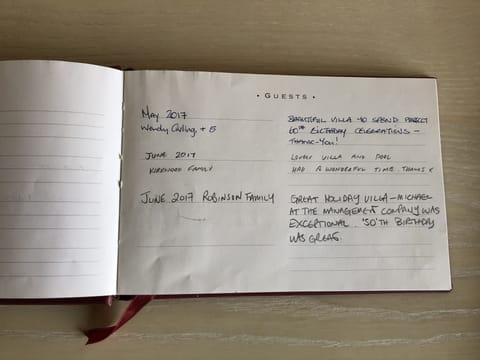 • GUESTS •
MAY 2017
Wendy + 5
BEAUTIFUL VILLA TO SPEND PERFECT
60TH BIRTHDAY CELEBRATIONS —
THANK-YOU!
JUNE 2017
KIRKWOOD FAMILY
LOVELY VILLA AND POOL
HAD A WONDERFUL TIME THANKS X
JUNE 2017 ROBINSON FAMILY
GREAT HOLIDAY VILLA — MICHAEL
AT THE MANAGEMENT COMPANY WAS
EXCEPTIONAL. '50'TH BIRTHDAY
WAS GREAT.